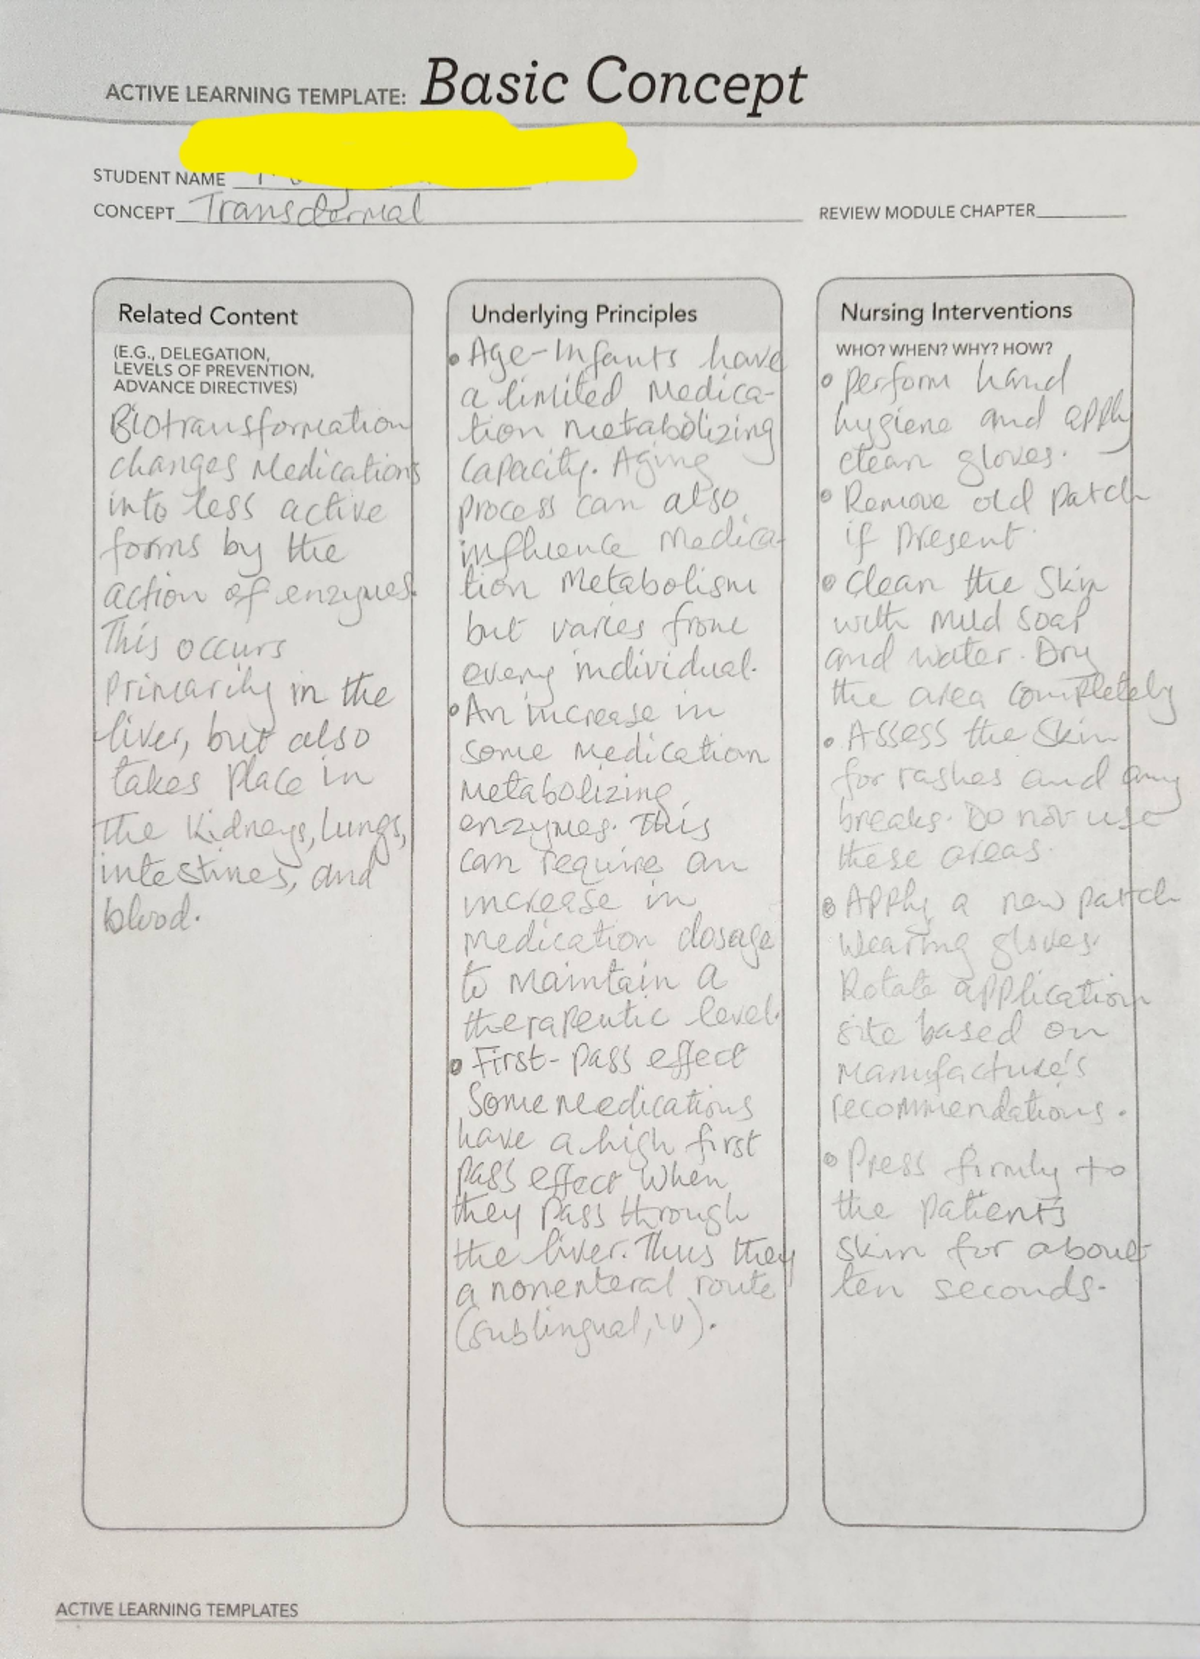 ACTIVE LEARNING TEMPLATE: Basic Concept
STUDENT NAME
CONCEPT Transdermal
REVIEW MODULE CHAPTER
Related Content
(E.G., DELEGATION,
LEVELS OF PREVENTION,
ADVANCE DIRECTIVES)
Biotransformation
changes Medications
into less active
forms by the
action of enzymes.
This occurs
primarily in the
liver, but also
takes place in
the kidneys, lungs,
intestines, and
blood.
Underlying Principles
• Age-Infants have
a limited Medica-
tion metabolizing
capacity. Aging
process can also
influence Medica-
tion Metabolism
but varies from
every individual.
• An increase in
some medication
Metabolizing
enzymes. This
can require an
increase in
medication dosage
to maintain a
therapeutic level.
• First-pass effect
Some Medications
have a high first
pass effect when
they pass through
the liver. Thus they
a nonenteral route
(sublingual, IV).
Nursing Interventions
WHO? WHEN? WHY? HOW?
• perform hand
hygiene and apply
clean gloves.
• Remove old patch
if present.
• clean the skin
with mild soap
and water. Dry
the area completely
• Assess the skin
for rashes and any
breaks. Do not use
these areas.
• Apply a new patch
wearing gloves.
Rotate application
site based on
Manufacture's
recommendations.
• Press firmly to
the patients
skin for about
ten seconds.
ACTIVE LEARNING TEMPLATES